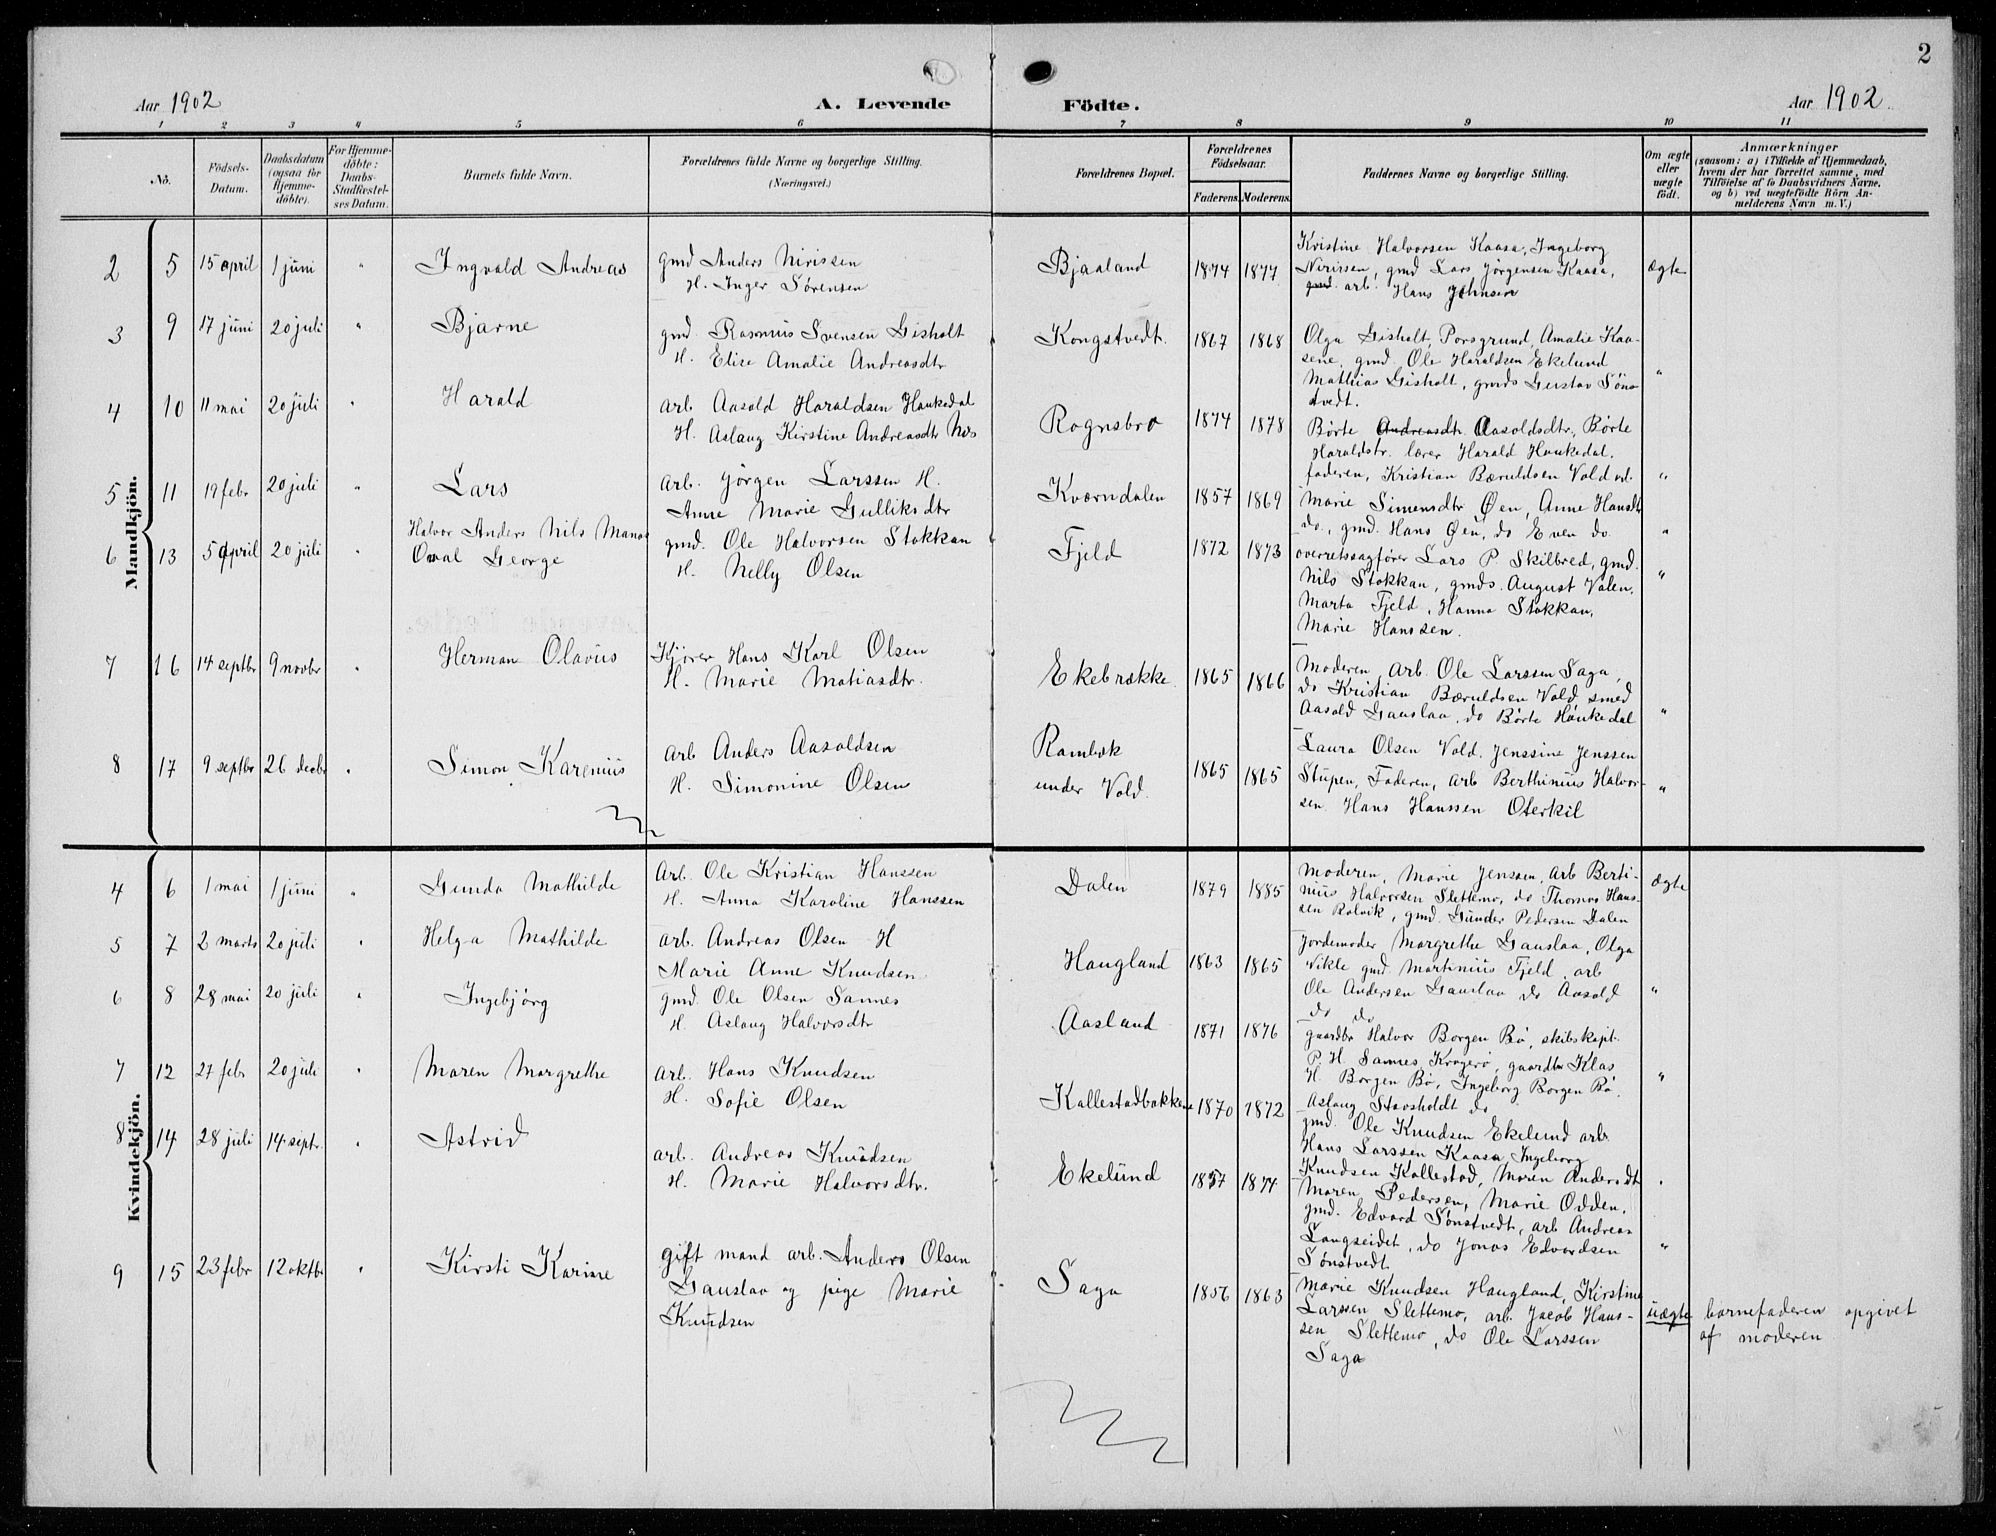 2
Aar 1902
A. Levende
Födte.
Aar 1902
1 2 3 4 5 6 7 8 9 10 11
No.
Födsels-Datum.
Daabsdatum (ogsaa for Hjemme-döbte).
For Hjemme-döbte: Daabs-Stadfæstel-ses Datum.
Barnets fulde Navn.
Forældrenes fulde Navne og borgerlige Stilling.
(Næringsvei.)
Forældrenes Bopæl.
Forældrenes Födselsaar.
Faderens. Moderens.
Faddernes Navne og borgerlige Stilling.
Om ægte eller uægte födt.
Anmærkninger
(saasom: a) i Tilfælde af Hjemmedaab,
hvem der har forrettet samme, med
Tilföielse af to Daabsvidners Navne,
og b) ved uægtefödte Börn An-
melderens Navn m. V.)
Mandkjön.
2 5 15 april 1 juni " Ingvald Andreas
gmd Anders Nirissen
H. Inger Sørensen
Bjaaland 1874 1877
Kristine Halvorsen Kaasa, Ingeborg
Nirissen, gmd Lars Jørgensen Kaasa,
gmd. arb. Hans Johnsen
ægte
3 9 17 juni 20 juli " Bjarne
gmd Rasmus Svensen Gisholt
H. Elise Amalie Andreasdtr
Kongstvedt. 1867 1868
Olga Gisholt, Porsgrund, Amalie Kaa-
sene, gmd. Ole Haraldsen Ekelund
Mathias Gisholt, gmds Gustav Søns
tvedt.
"
4 10 11 mai 20 juli " Harald
arb Aasold Haraldsen Haukedal
H. Aslaug Kirstine Andreasdtr Næs
Rognsbro 1874 1878
Børte Andreasdtr. Aasoldsdtr, Børte
Haraldstr. lærer Harald Haukedal.
faderen, Kristian Bæruldsen Vold
"
5 11 19 febr 20 juli " Lars
Arb. Jørgen Larssen H.
Anne Marie Gulliksdtr
Kværndalen 1857 1869
Marie Simensdtr Øen, Anne Hansdtr
do., gmd. Hans Øen, do Even do.
"
6 13 5 april 20 juli "
Halvor Anders Nils
Orval George
gmd. Ole Halvorsen Stokkan
H. Nelly Olsen
Fjeld 1872 1873
overretssagfører Lars P. Skilbred, gmd.
Nils Stokkan, gmds. August Valen.
Marta Fjeld, Hanna Stokkan,
Marie Hanssen.
"
7 16 14 septbr 9 novbr " Herman Olavus
Kjører Hans Karl Olsen
H. Marie Matiasdtr.
Ekebrække 1865 1866
Moderen, arb. Ole Larssen Saga,
do Kristian Bæruldsen Vold, smed
Aasold Gauslaa, do Børte Haukedal
"
8 17 9 septbr 26 decbr " Simon Karenius
arb Anders Aasoldsen
H. Simonine Olsen
Rambæk
under Vold. 1865 1865
Laura Olsen Vold. Jenssine Jenssen
Stupen, Faderen, arb Berthinius Halvor-
sen. Hans Hanssen Oterkil
"
Kvindekjön.
4 6 1 mai 1 juni " Gunda Mathilde
Arb. Ole Kristian Hanssen
H. Anna Karoline Hanssen
Dalen 1879 1885
Moderen, Marie Jenssen, arb Berti-
nius Halvorsen Slettemo, do Thomas Hans-
sen Rolvik, gmd. Gunder Pedersen Dalen
ægte
5 7 2 marts 20 juli " Helga Mathilde
arb. Andreas Olsen H
Marie Anne Knudsen
Haugland 1863 1865
Jordemoder Margrethe Gauslaa, Olga
Vikle gmd. Martinius Fjeld, arb
Ole Andersen Gauslaa do Aasold
do do
"
6 8 28 mai 20 juli " Ingebjørg
gmd. Ole Olsen Sannes
H. Aslaug Halvorsdtr
Aasland 1871 1876
gaardbr Halvor Borgen Bø, skibskapt.
P. H. Sannes, Kragerø, gaardbr Klas
H. Borgen Bø, Ingeborg Borgen Bø,
Aslaug Stavsholdt do
"
7 12 27 febr 20 juli " Maren Margrethe
arb. Hans Knudsen
H. Sofie Olsen
Kallestadbakkene 1870 1872
gmd. Ole Knudsen Ekelund arb.
Hans Larssen Kaasa, Ingeborg
Knudsen Kallestad, Maren Andersdtr
8 14 28 juli 14 septr. " Astrid
arb. Andreas Knudsen
H. Marie Halvorsdtr.
Ekelund 1857 1874
Maren Pedersen, Marie Odden,
gmd. Edvard Sønstvedt, arb Andreas
Langseidet, do Jonas Edvardsen
Sønstvedt
"
9 15 23 febr 12 oktbr " Kirsti Karine
gift mand arb. Anders Olsen
Gauslaa og pige Marie
Knudsen
Saga 1856 1863
Marie Knudsen Haugland, Kirstine
Larssen Slettemo, arb. Jacob Hans-
sen Slettemo, do Ole Larssen
Saga
uægte
barnefaderen opgivet
af moderen